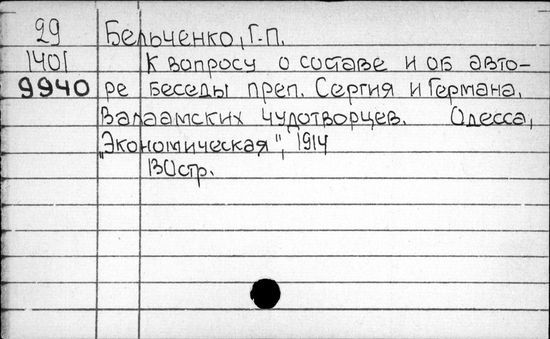 29 Бельченко, Г-П.
1401 К вопросу о составе и об авто-
9940 ре Беседы преп. Сергия и Германа,
Валаамских чудотворцев. Одесса,
"Экономическая", 1914
130стр.